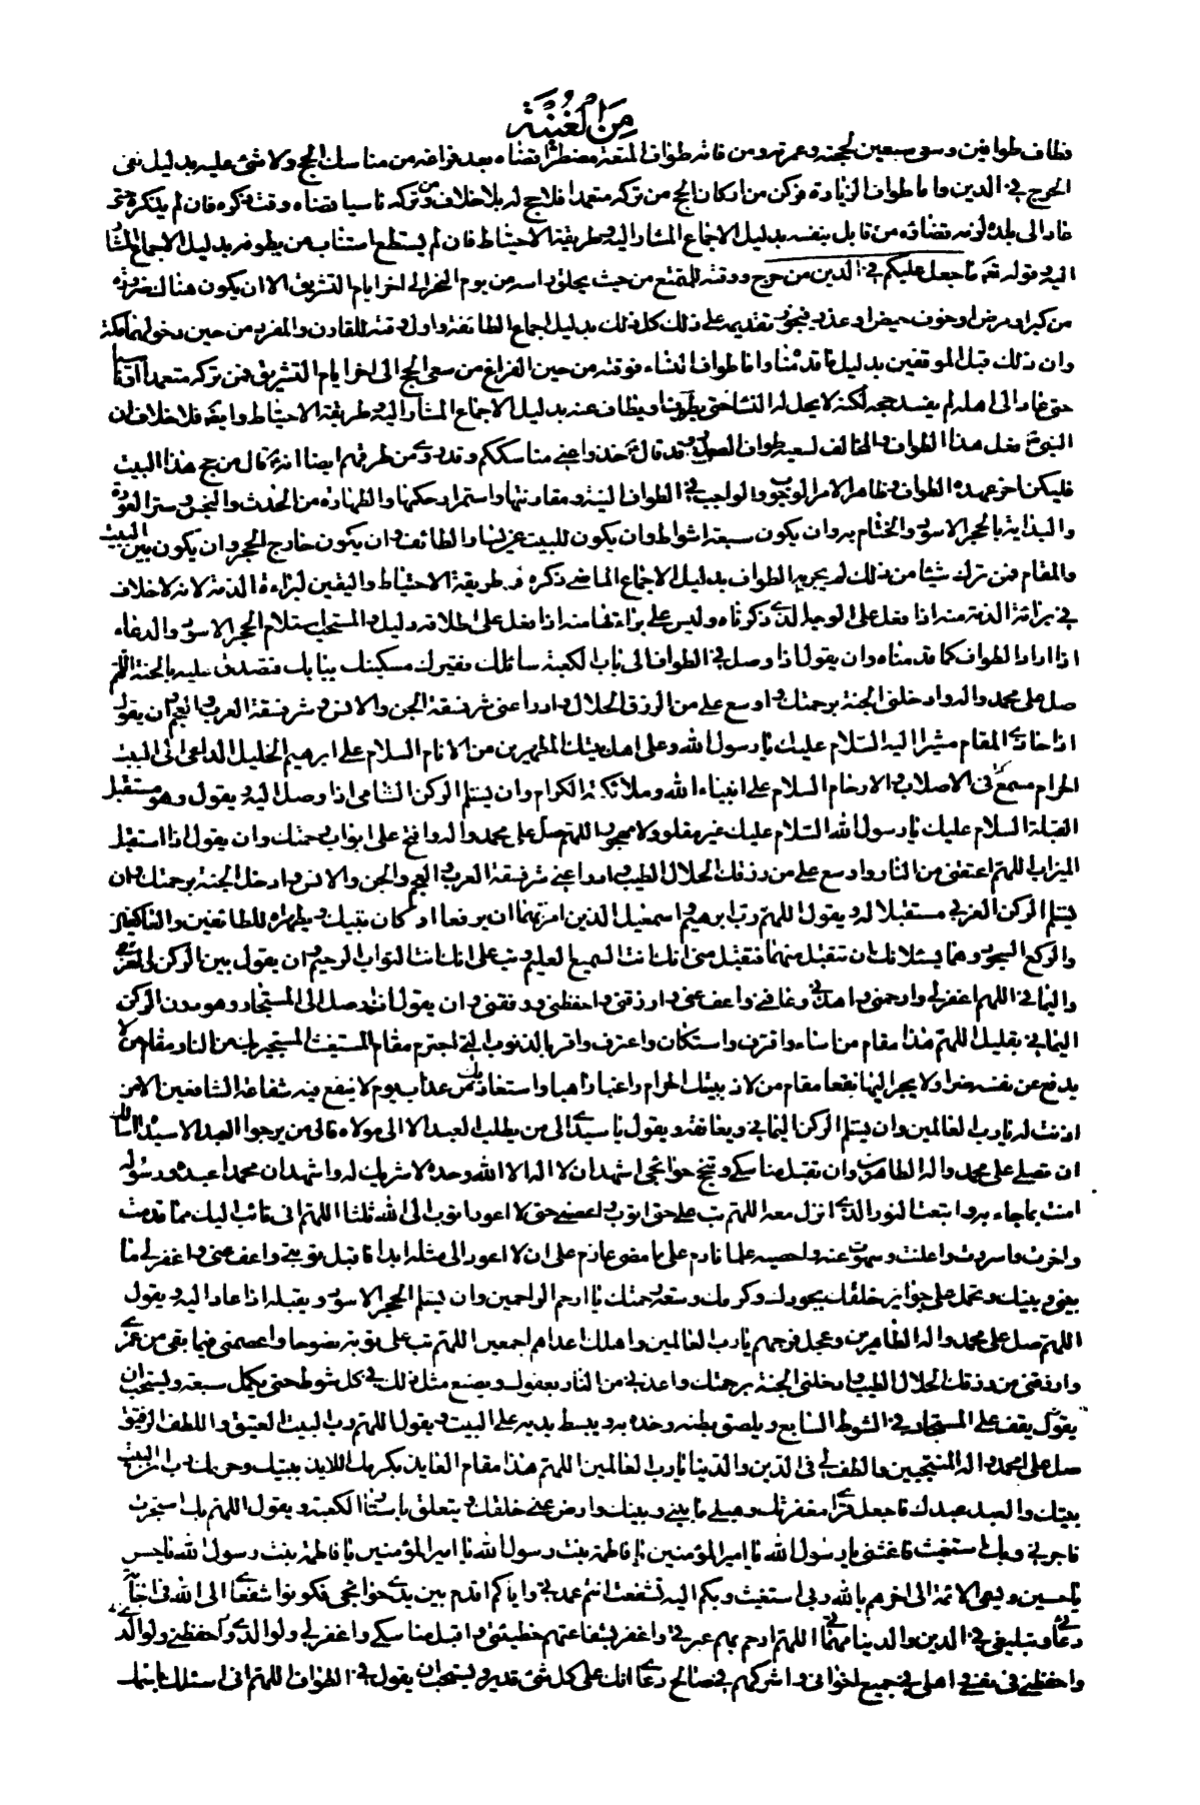 مِنَ الغُنيَة
فطاف طوافين وسعى سعيين لحجته وعمرته ومن فاته طواف المتعة مضطرا قضاه بعد فراغه من مناسك الحج ولا شئ عليه بدليل نفى
الحرج في الدين واما طواف الزيارة فركن من اركان الحج من تركه متعمدا فلا حج له بلا خلاف ومن تركه ناسيا قضاه وقت ذكره فان لم يذكره حتى
عاد الى بلده لزمه قضاؤه من قابل بنفسه بدليل الاجماع المشار اليه وطريقة الاحتياط فان لم يستطع استناب من يطوفه بدليل الاجماع المشار
اليه وقوله تعالى ما جعل عليكم في الدين من حرج ووقته للمتمتع من حيث يحلق راسه من يوم النحر الى اخر ايام التشريق الا ان يكون هناك ضرورة
من كبر او مرض او خوف حيض او عذر فيجوز تقديمه على ذلك كل ذلك بدليل اجماع الطائفة واول وقته للقارن والمفرد من حين دخولهما مكة
وان ذلك قبل الموقفين بدليل ما قدمنا واما طواف النساء فوقته من حين الفراغ من سعى الحج الى اخر ايام التشريق فمن تركه متعمدا او ناسيا
حتى عاد الى اهله لم يفسد حجه لكنه لا يحل له النساء حتى يطوف او يطاف عنه بدليل الاجماع المشار اليه وطريقة الاحتياط وايضا فلا خلاف ان
النبي فعل هذا الطواف والمخالف يسميه طواف الصدر وقد قال خذوا عني مناسككم وقد روى من طرقهم ايضا انه قال من حج هذا البيت
فليكن اخر عهده الطواف وظاهر الامر الوجوب والواجب في الطواف النية ومقارنتها واستمرار حكمها والطهارة من الحدث والنجس وستر العورة
والبداية بالحجر الاسود والختام به وان يكون سبعة اشواط وان يكون البيت عن يسار الطائف وان يكون خارج الحجر وان يكون بين البيت
والمقام فمن ترك شيئا من ذلك لم يجزه الطواف بدليل الاجماع الماضي ذكره وطريقة الاحتياط واليقين لبراءة الذمة لانه لا خلاف
في براءة الذمة منه اذا فعل على الوجه الذي ذكرناه وليس على براءتها منه اذا فعل على خلافه دليل والمستحب استلام الحجر الاسود والدعاء
اذا اراد الطواف كما قدمناه وان يقول اذا وصل في الطواف الى باب الكعبة سائلك فقيرك مسكينك ببابك فتصدق عليه بالجنة اللهم
صل على محمد واله وادخلني الجنة برحمتك واوسع على من الرزق الحلال وادرا عنى شر فسقة الجن والانس وشر فسقة العرب والعجم وان يقول
اذا حاذى المقام مشيرا اليه السلام عليك يا رسول الله وعلى اهل بيتك المطهرين من الاثام السلام على ابرهيم الخليل الداعى الى البيت
الحرام مسمع من في الاصلاب والارحام السلام على انبياء الله وملائكته الكرام وان يستلم الركن الشامى اذا وصل اليه ويقول وهو مستقبل
القبلة السلام عليك يا رسول الله السلام عليك غير مقلو ولا مهجور اللهم صل على محمد واله وافتح على ابواب رحمتك وان يقول اذا استقبل
الميزاب اللهم اعتقنى من النار واوسع على من رزقك الحلال الطيب وادرا عني شر فسقة العرب والعجم والجن والانس وادخل الجنة برحمتك وان
يستلم الركن الغربي مستقبلا له ويقول اللهم رب ابرهيم واسمعيل الذين امرتهما ان يرفعا اركان بيتك ويطهراه للطائفين والعاكفين
والركع السجود وهما يسئلانك ان تتقبل منهما فتقبل منى انك انت السميع العليم وتب على انك انت التواب الرحيم وان يقول بين الركن الغربي
واليماني اللهم اغفر لي وارحمني واهدني وعافني واعف عنى وارزقني واحفظني ووفقني وان يقول اذا وصل الى المستجار وهو دون الركن
اليماني بقليل اللهم هذا مقام من اساء واقترف واستكان واعترف واقر بالذنوب التي اجترم مقام المستغيث المستجير بك من النار مقام من لا
يدفع عن نفسه ضرا ولا يجر اليها نفعا مقام من لاذ ببيتك الحرام راغبا راهبا واستعاذ بك من عذاب يوم لا ينفع فيه شفاعة الشافعين الا من
اذنت له يا رب العالمين وان يستلم الركن اليماني ويعانقه ويقول يا سيدي الى من يطلب العبد الا الى مولاه والى من يرجوا العبد الا سيده اسالك
ان تصلى على محمد واله الطاهرين وان تقبل مناسكي وتنجح حوائجى اشهد ان لا اله الا الله وحده لا شريك له واشهد ان محمدا عبده ورسوله
امنت بما جاء به واتبعت النور الذي انزل معه اللهم تب على حتى اتوب واعصمني حتى لا اعود اتوب الى الله ثلثا اللهم انى تائب اليك مما قدمت
واخرت واسررت واعلنت وسهوت عنه واحصيته علما نادم على ما مضى عازم على ان لا اعود الى مثله ابدا فاقبل توبتي واعف عنى واغفر لي ما
بيني وبينك وتحمل على جوائز خلقك بجودك وكرمك وسعة رحمتك يا ارحم الراحمين وان يستلم الحجر الاسود ويقبله اذا عاد اليه ويقول
اللهم صل على محمد واله الطاهرين وعجل فرجهم يا رب العالمين واهلك اعداءهم اجمعين اللهم تب على توبة نصوحا واعصمنى فيما بقى من عمري
وارزقنى من رزقك الحلال الطيب وادخلني الجنة برحمتك واعذني من النار بعفوك ويصنع مثل ذلك في كل شوط حتى يكمل سبعة ويستحب ان
يقف على المستجار في الشوط السابع ويلصق بطنه وخده به ويبسط يديه على البيت ويقول اللهم رب البيت العتيق واللطف الرفيق
صل على محمد واله المنتجبين والطف لي في الدين والدنيا يا رب العالمين اللهم هذا مقام العايذ بكرمك اللائذ ببيتك وحرمك رب البيت
بيتك والعبد عبدك فاجعل قراى مغفرتك وهب لي ما بيني وبينك وارض عني خلقك ويتعلق باستار الكعبة ويقول اللهم بك استجرت
فاجرني وبك استغثت فاغثنى يا رسول الله يا امير المؤمنين يا فاطمة بنت رسول الله يا امير المؤمنين يا فاطمة بنت رسول الله يا حسن
يا حسين ويسمى الائمة الى اخرهم بالله ربى استغيث وبكم اليه تشفعت انتم عمدتي واياكم اقدم بين يدي حوائجي فكونوا شفعائى الى الله في اجابة
دعائى وتبليغى في الدين والدنيا مناى اللهم ارحم بهم عبرتي واغفر بشفاعتهم خطيئتي واقبل مناسكي واغفر لي ولوالدي واحفظني ولوالدي
واحفظني في نفسي واهلي وفي جميع اخواني واشركهم في صالح دعائي انك على كل شئ قدير ويستحب ان يقول في الطواف اللهم انى اسئلك باسمك